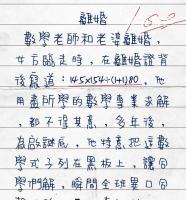 離婚
數學老師和老婆離婚，
女方臨走時，在離婚證背
後寫道：145×154÷(1+1)80，他
用畫所學的數學專業求解
，都不得其意，多年後，
為啟謎底，他特意把這數
學式子列在黑板上，讓同
學們解，瞬間全班異口同